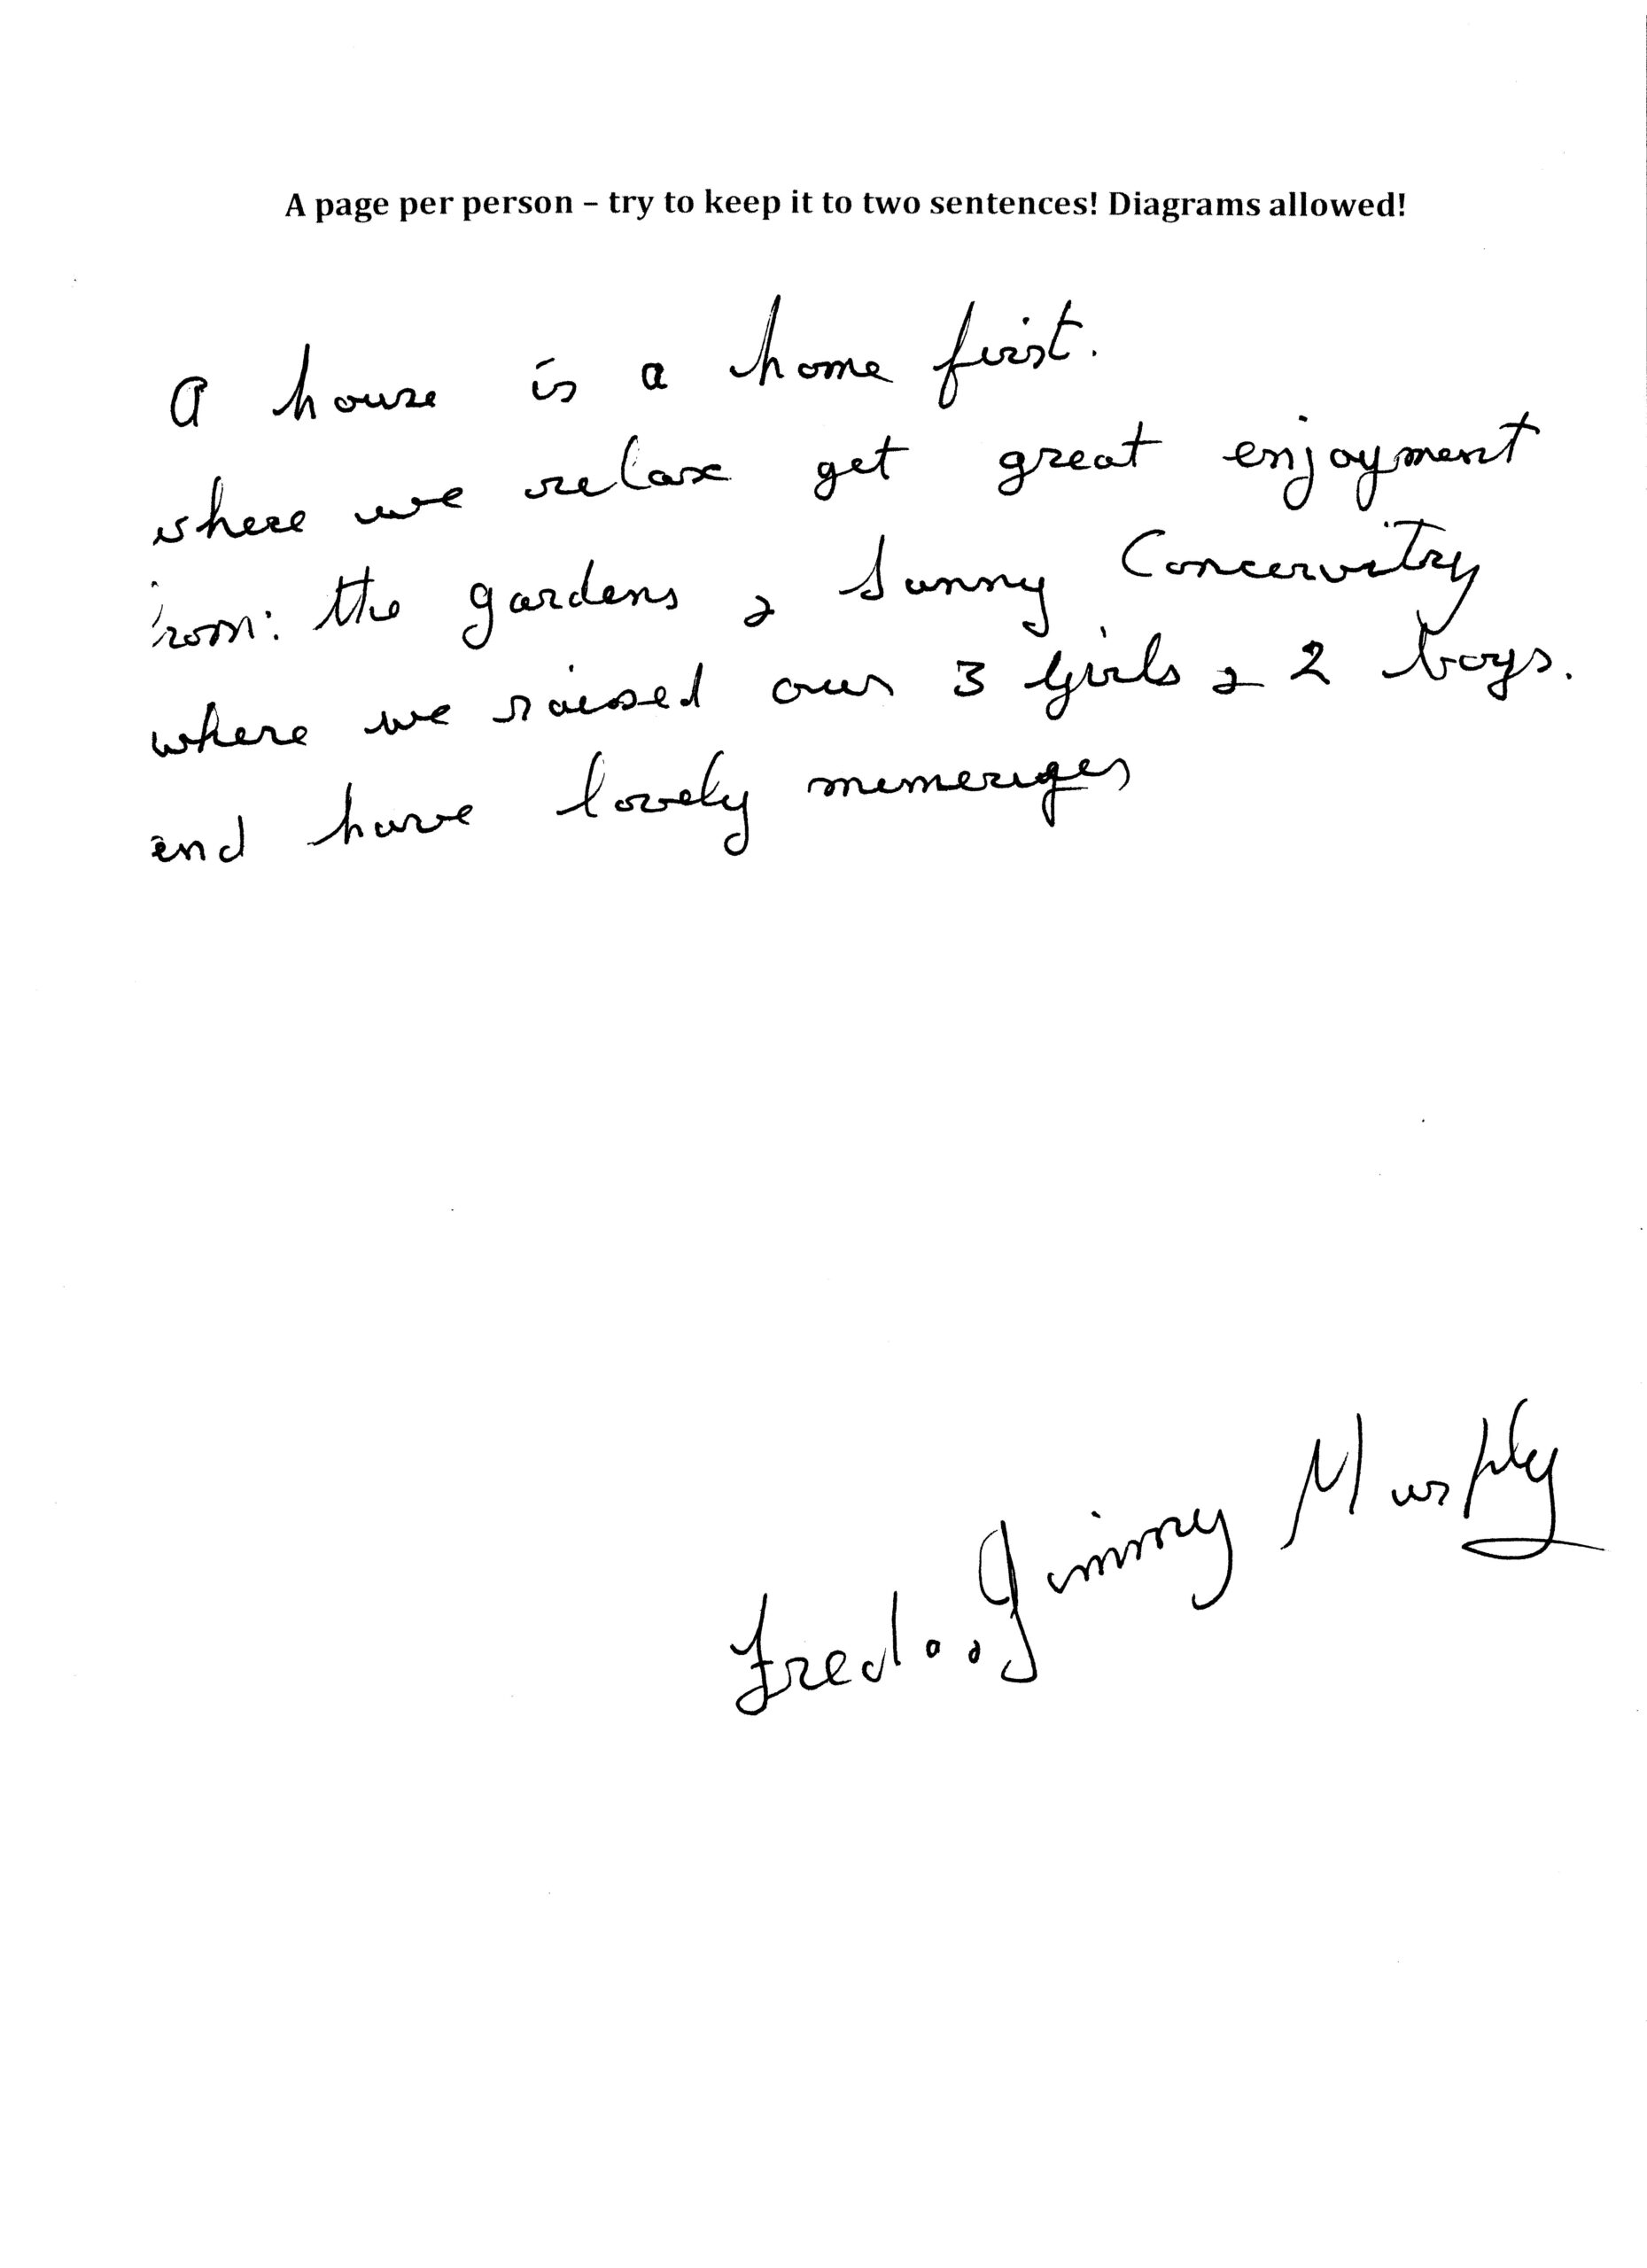 A page per person – try to keep it to two sentences! Diagrams allowed!
A house is a home first.
where we relax get great enjoyment
from: the gardens & Sunny Concervitry
where we raised our 3 girls & 2 boys.
and have lovely
Fred... Jimmy Murphy